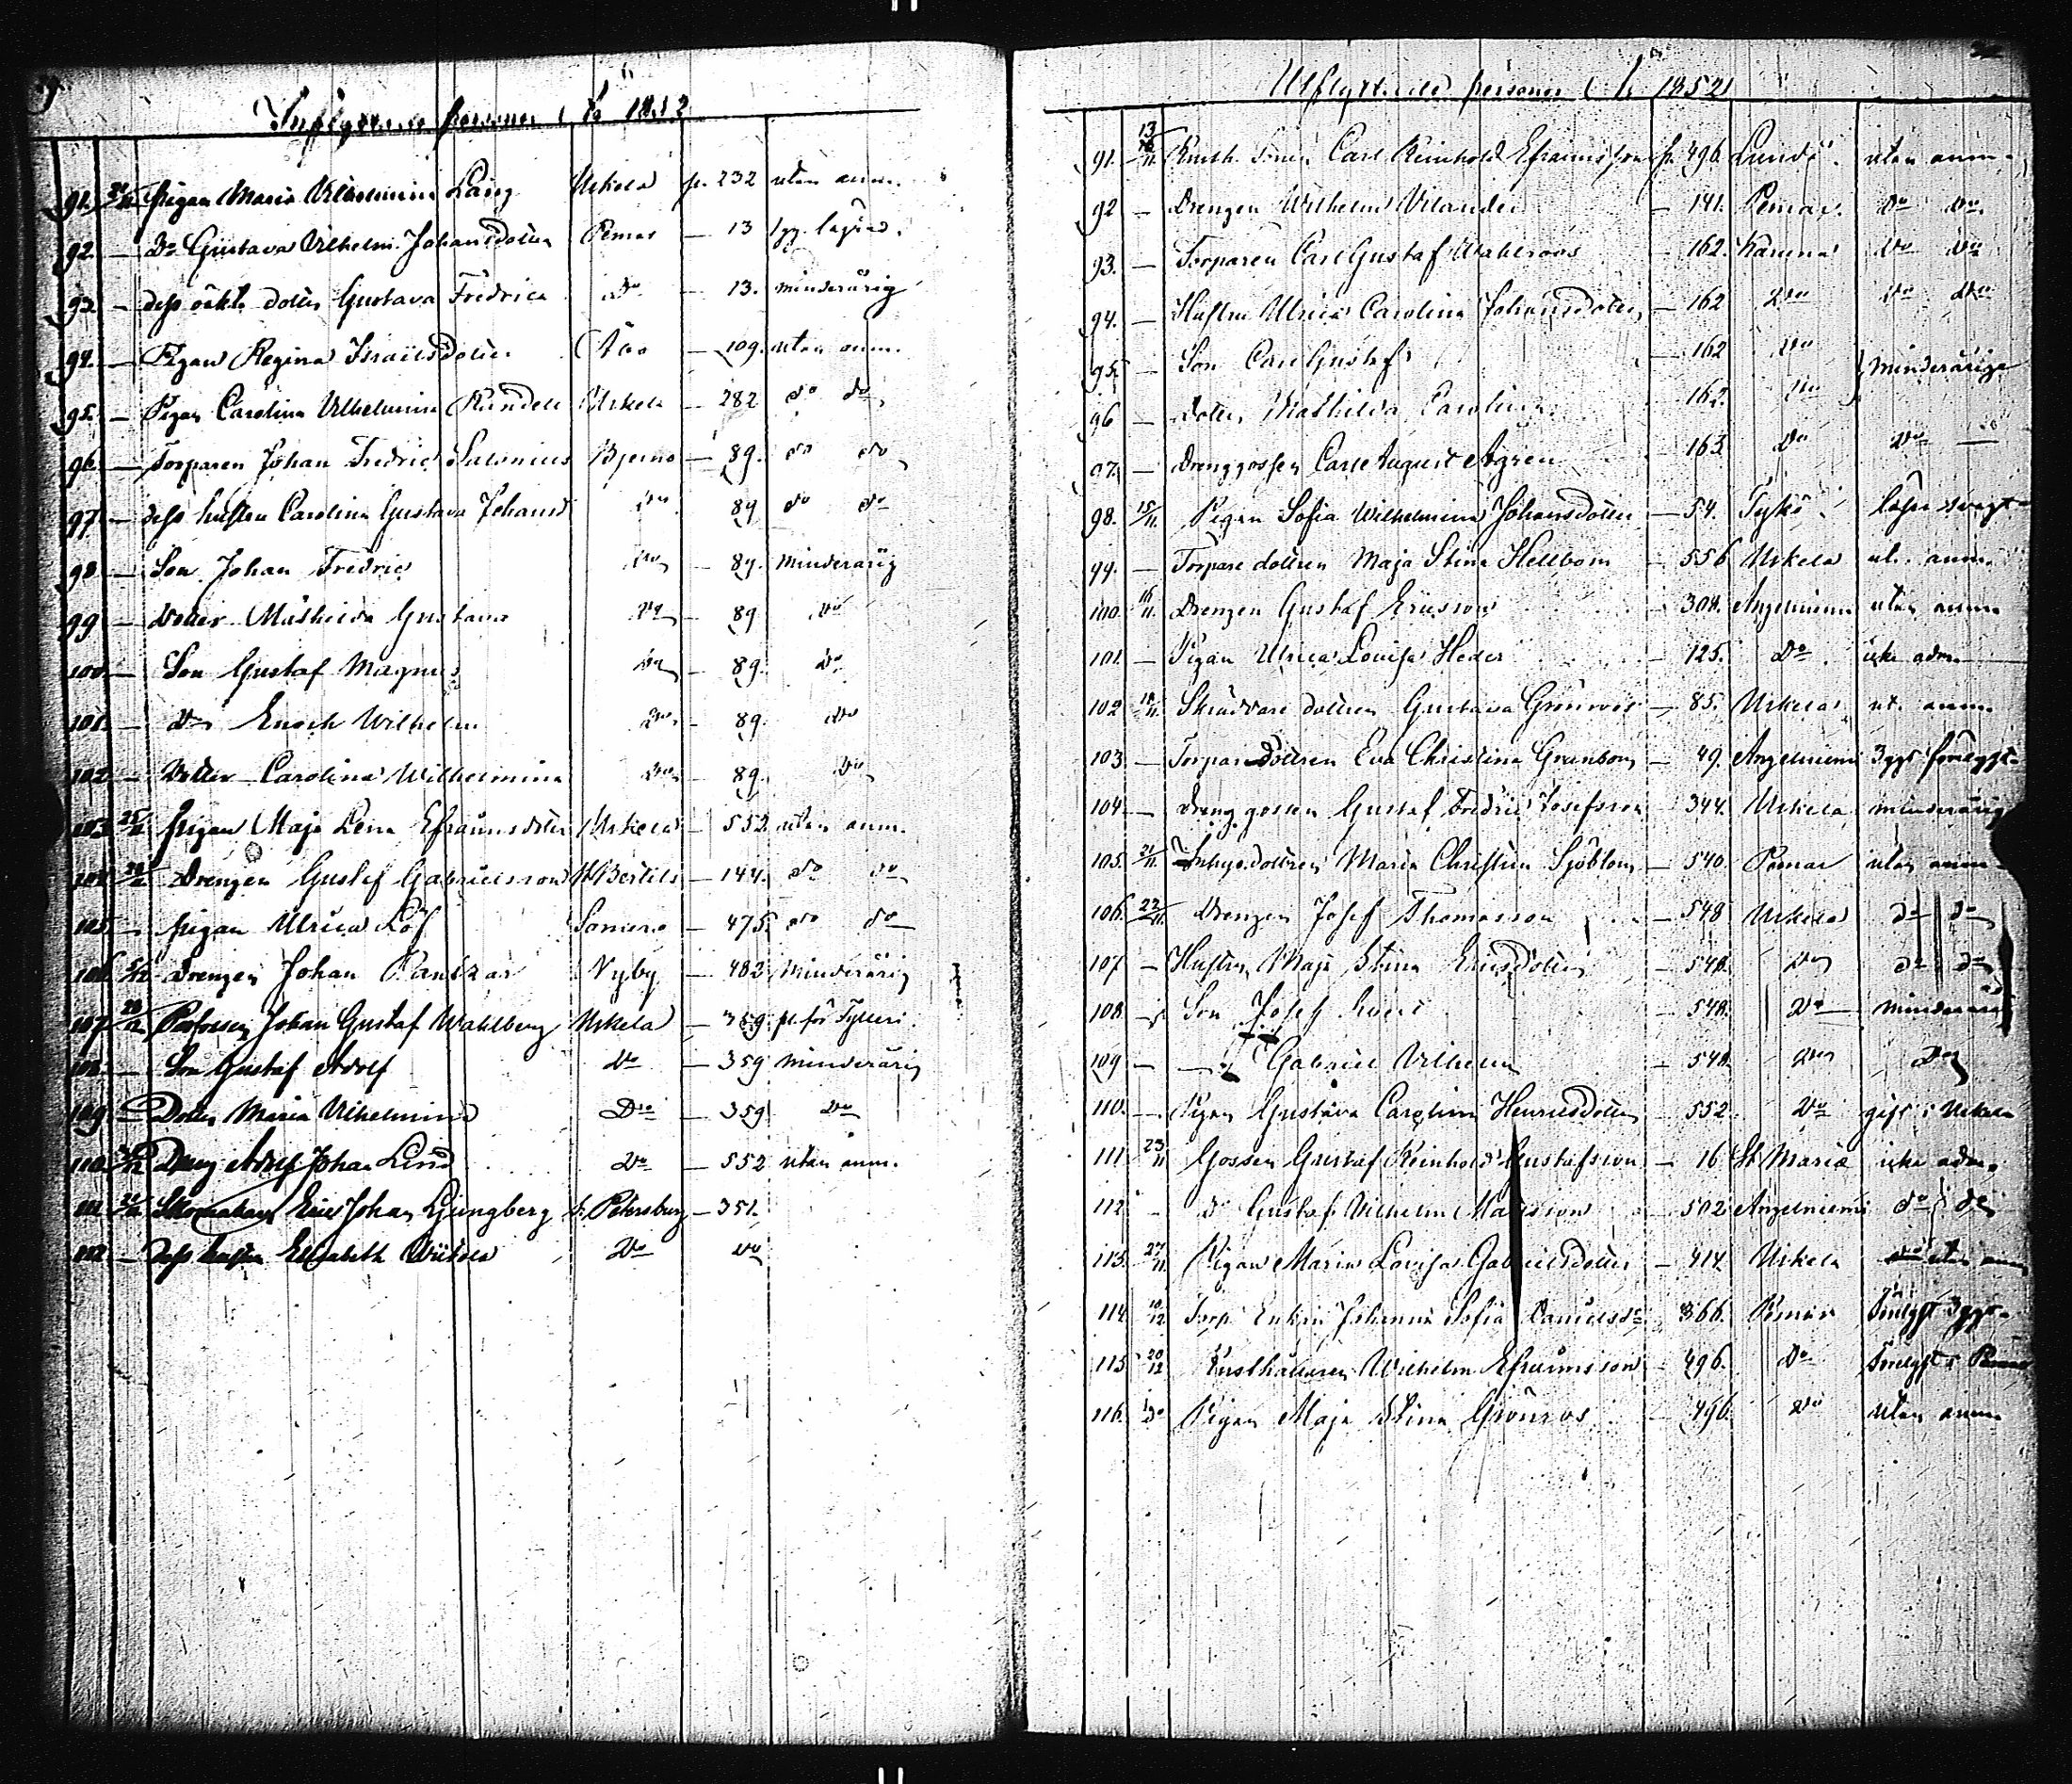 Inflyttande personer 1852
91. Pigan Maria Vilhelmina Lång Uskela p. 232 utan anm.
92. — Do Gustava Vilhelm. Johansdotter Pemar — 13
93. — dess oäkta dotter Gustava Fredrica Do — 13. minderårig
94. — Pigan Regina Israelsdotter Åbo — 109. utan anm.
95. — Pigan Carolina Vilhelmina Uskela — 282 do do
96. — Torparen Johan Fredric Salonius Bjerno — 89. do do
97. — dess hustru Carolina Gustava Johansd do 89 do do
98 — Son Johan Fredric do — 89. minderårig
99 — Dotter Mathilda Gustava do — 89 do
100. — Son Gustaf Magnus do — 89. do
101. — do Enoch Wilhelm do — 89. do
102 — Dotter Carolina Wilhelmina do — 89. do
103 25/11 pigan Maja Lena Efraimsdotter Uskela — 552 utan anm.
104 Drengen Gustaf Gabrielsson St Bertils — 144. do do
105 — pigan Ulrica Löf Somero — 475 do do
106 Drengen Johan Nyby — 483 Minderårig
107 Johan Gustaf Wahlberg Uskela — 359
108 — Son Gustaf Adolf Do — 359 minderårig
109 — Dotter Maria Vilhelmina Do — 359 do
110 Dreng Adolf Johan Lind Do — 552 utan anm.
111 Eric Johan Ljungberg St. Petersburg — 351.
112 — dess hustru Elisabeth Do do
Utflyttande personer 1852
91. 13/11 Rusth. Sonen Carl Reinhold Efraimsson p. 496. Lundo. utan anm.
92 — Drengen Wilhelm Vilander — 141. Pemar. do do
93. — Torparen Carl Gustaf Wahlroos — 162. Karuna do do
94. — Hustru Ulrica Carolina Johansdotter — 162 do do do
95. — Son Carl Gustaf — 162 do
96 — Dotter Mathilda Carolina 162. do minderåriga
97. — Drenggossen Carl August Ågren 163 do do
98. 15/11 Pigan Sofia Wilhelmina Johansdotter — 54. Tykö läser svagt
99. — Torpare dottren Maja Stina Hellbom — 556 Uskela ut. anm.
100. 16/11 Drengen Gustaf Ericsson — 304. Angelniemi utan anm.
101. — Pigan Ulrica Lovisa Heder — 125. Do icke adm.
102 18/11 Skräddare dottren Gustava Grönroos — 85. Uskela ut. anm.
103. — Torparedottren Eva Christina Granbom — 49. Angelniemi 3 ggr
104 — Dreng gossen Gustaf Fredric Josefsson — 344. Uskela minderårig
105. 21/11 Inhys. dottren Maria Christina Sjöblom — 540. Pemar utan anm.
106. 22/11 Drengen Josef Thomasson — 548 Uskela do do
107 — Hustru Maja Stina Ericsdotter — 548. do do do
108. — Son Josef — 548. do minderårig
109 — — Gabriel Vilhelm — 548. do do
110. — Pigan Gustava Carolina Henricsdotter — 552. do gift i Uskela
111 23/11 Gossen Gustaf Reinhold Gustafsson — 16 St Mariæ icke adm.
112 — do Gustaf Vilhelm — 502 Angelniemi do do
113. 27/11 Pigan Maria Lovisa Gabrielsdotter — 414 Uskela utan anm
114. 10/12 Torp Enkan Johanna Sofia Danielsd — 366. Pemar 3 ggr
115 20/12 Rusthållaren Wilhelm Efraimsson — 496. Do
116. do Pigan Maja Stina Grönroos — 496. do utan anm.